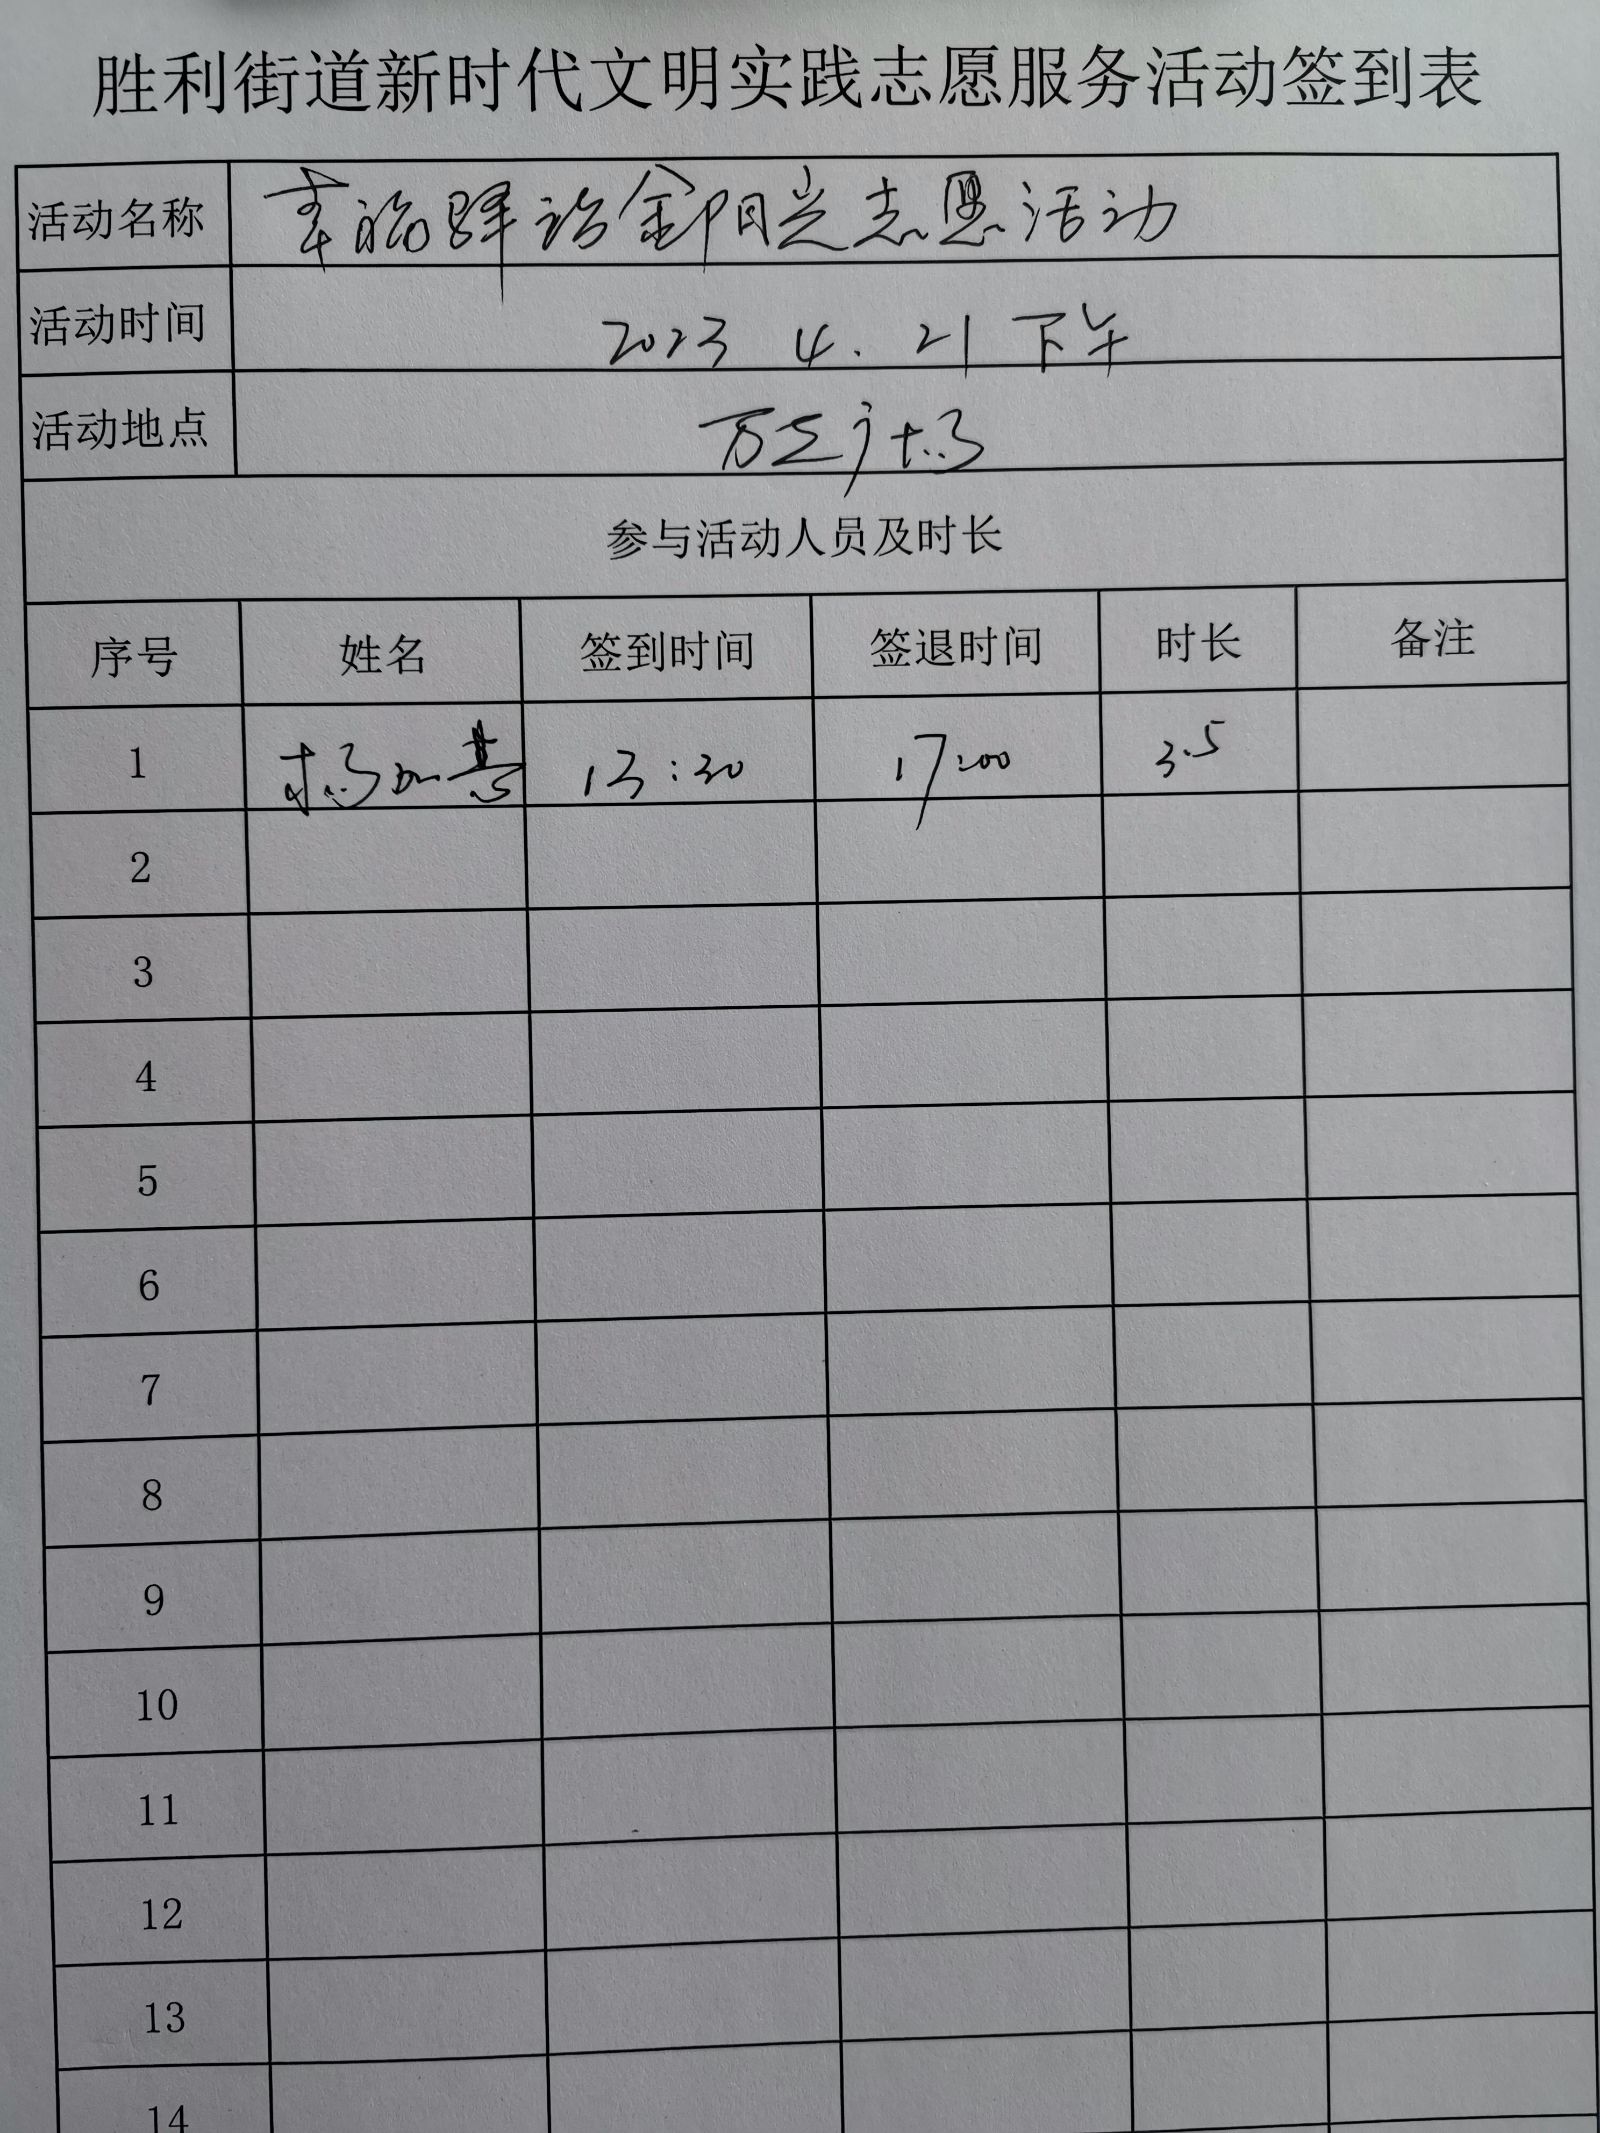 胜利街道新时代文明实践志愿服务活动签到表
活动名称 幸福驿站金阳光志愿活动
活动时间 2023 4.21下午
活动地点 万达广场
参与活动人员及时长
序号 姓名 签到时间 签退时间 时长 备注
1 杨如意 13:30 17:00 3.5
2
3
4
5
6
7
8
9
10
11
12
13
14